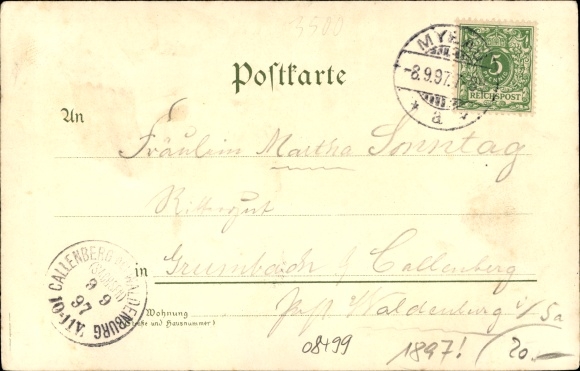 3500
Postkarte
MYLAU
-8.9.97.
* a
5
REICHSPOST
An
Fräulein Martha Sonntag
Rittergut
in Grumbach b/ Callenberg
Post Waldenburg i/Sa
Wohnung
(Straße und Hausnummer)
CALLENBERG WALDENBURG
(SACHSEN)
9 9
97
10-11V.
08499
1897!
20.-